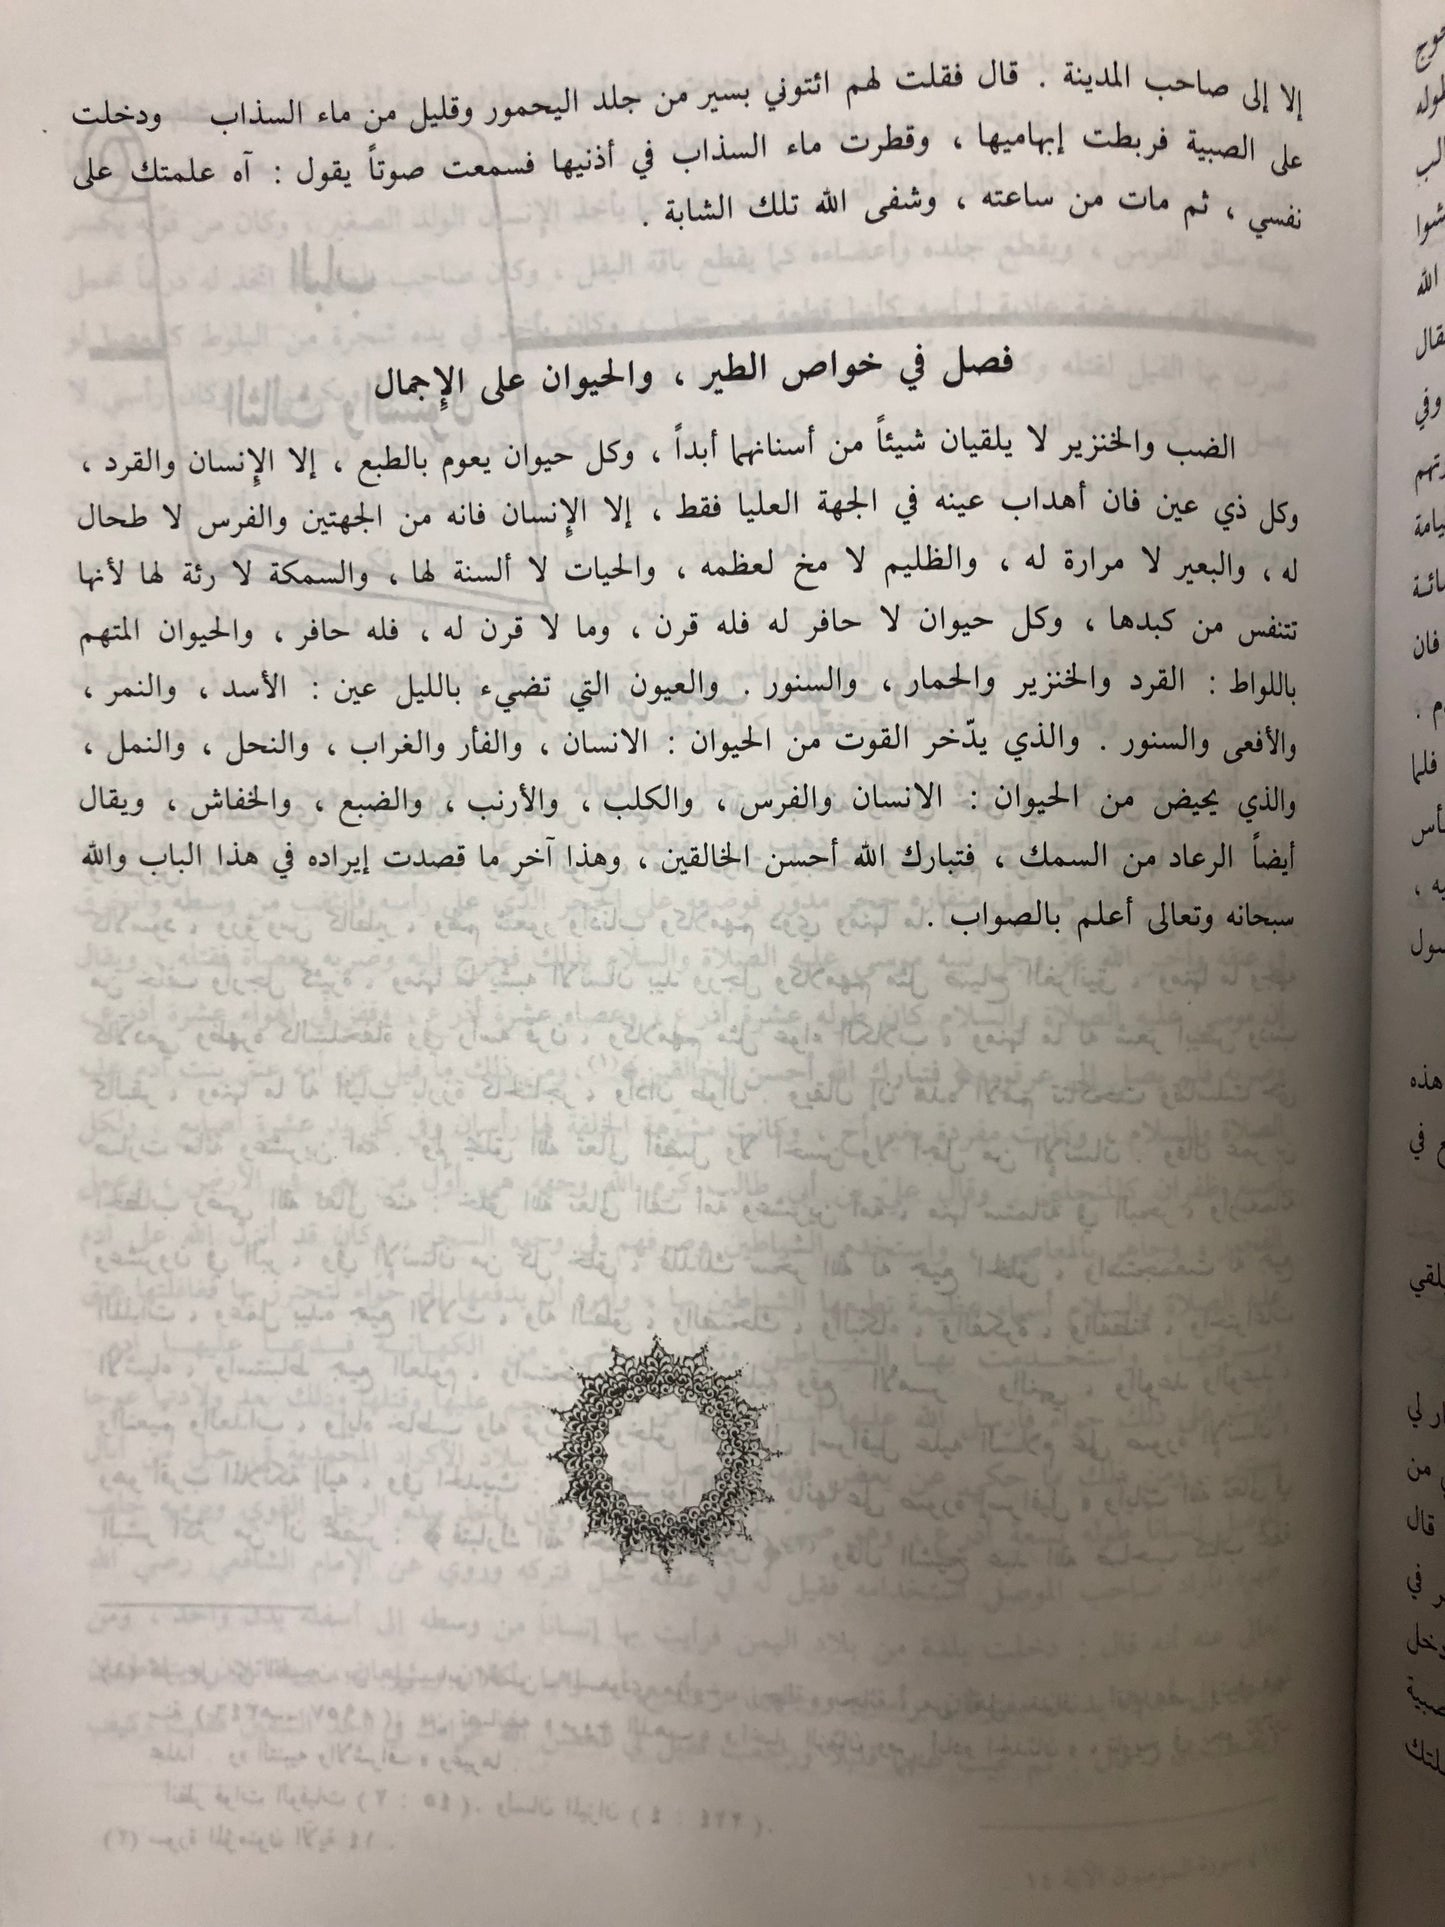 إلا إلى صاحب المدينة . قال فقلت لهم ائتوني بسير من جلد اليحمور وقليل من ماء السذاب ودخلت
على الصبية فربطت إبهاميها ، وقطرت ماء السذاب في أذنيها فسمعت صوتاً يقول : آه علمتك على
نفسي ، ثم مات من ساعته ، وشفى الله تلك الشابة .
فصل في خواص الطير ، والحيوان على الإجمال
الضب والخنزير لا يلقيان شيئاً من أسنانهما أبداً ، وكل حيوان يعوم بالطبع ، إلا الإنسان والقرد ،
وكل ذي عين فان أهداب عينه في الجهة العليا فقط ، إلا الإنسان فانه من الجهتين والفرس لا طحال
له ، والبعير لا مرارة له ، والظليم لا مخ لعظمه ، والحيات لا ألسنة لها ، والسمكة لا رئة لها لأنها
تتنفس من كبدها ، وكل حيوان لا حافر له فله قرن ، وما لا قرن له ، فله حافر ، والحيوان المتهم
باللواط : القرد والخنزير والحمار ، والسنور . والعيون التي تضيء بالليل عين : الأسد ، والنمر ،
والأفعى والسنور . والذي يدّخر القوت من الحيوان : الانسان ، والفأر والغراب ، والنحل ، والنمل ،
والذي يحيض من الحيوان : الانسان والفرس ، والكلب ، والأرنب ، والضبع ، والخفاش ، ويقال
أيضاً الرعاد من السمك ، فتبارك الله أحسن الخالقين ، وهذا آخر ما قصدت إيراده في هذا الباب والله
سبحانه وتعالى أعلم بالصواب .